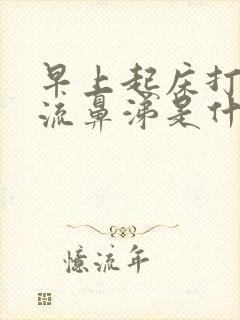 早上起床打
流鼻涕是什
憶流年